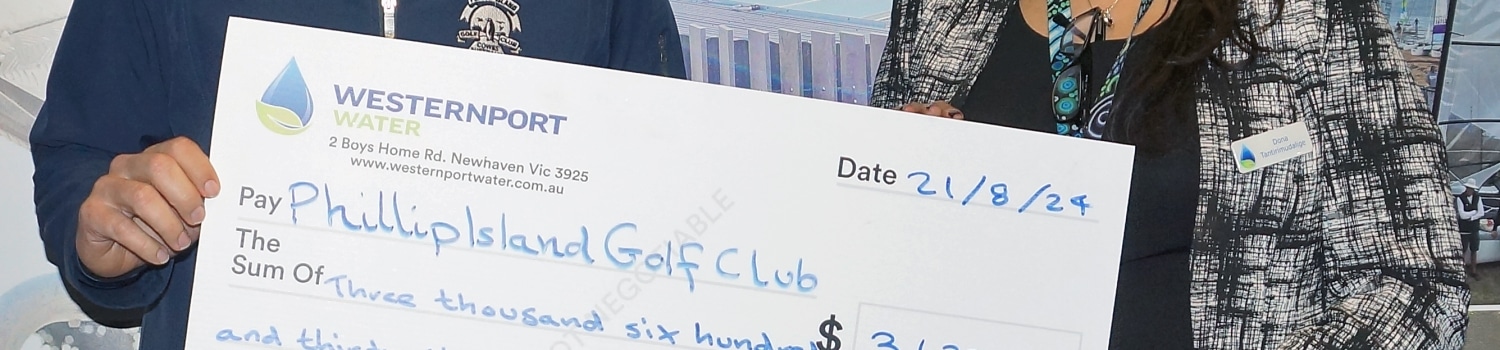 GOLF CLUB
COWES
WESTERNPORT
WATER
2 Boys Home Rd. Newhaven Vic 3925
www.westernportwater.com.au
Date 21/8/24
Pay Phillip Island Golf Club
The
Sum Of Three thousand six hundred
and
$ 3
NOT NEGOTIABLE
Dona
Tantirimudalige